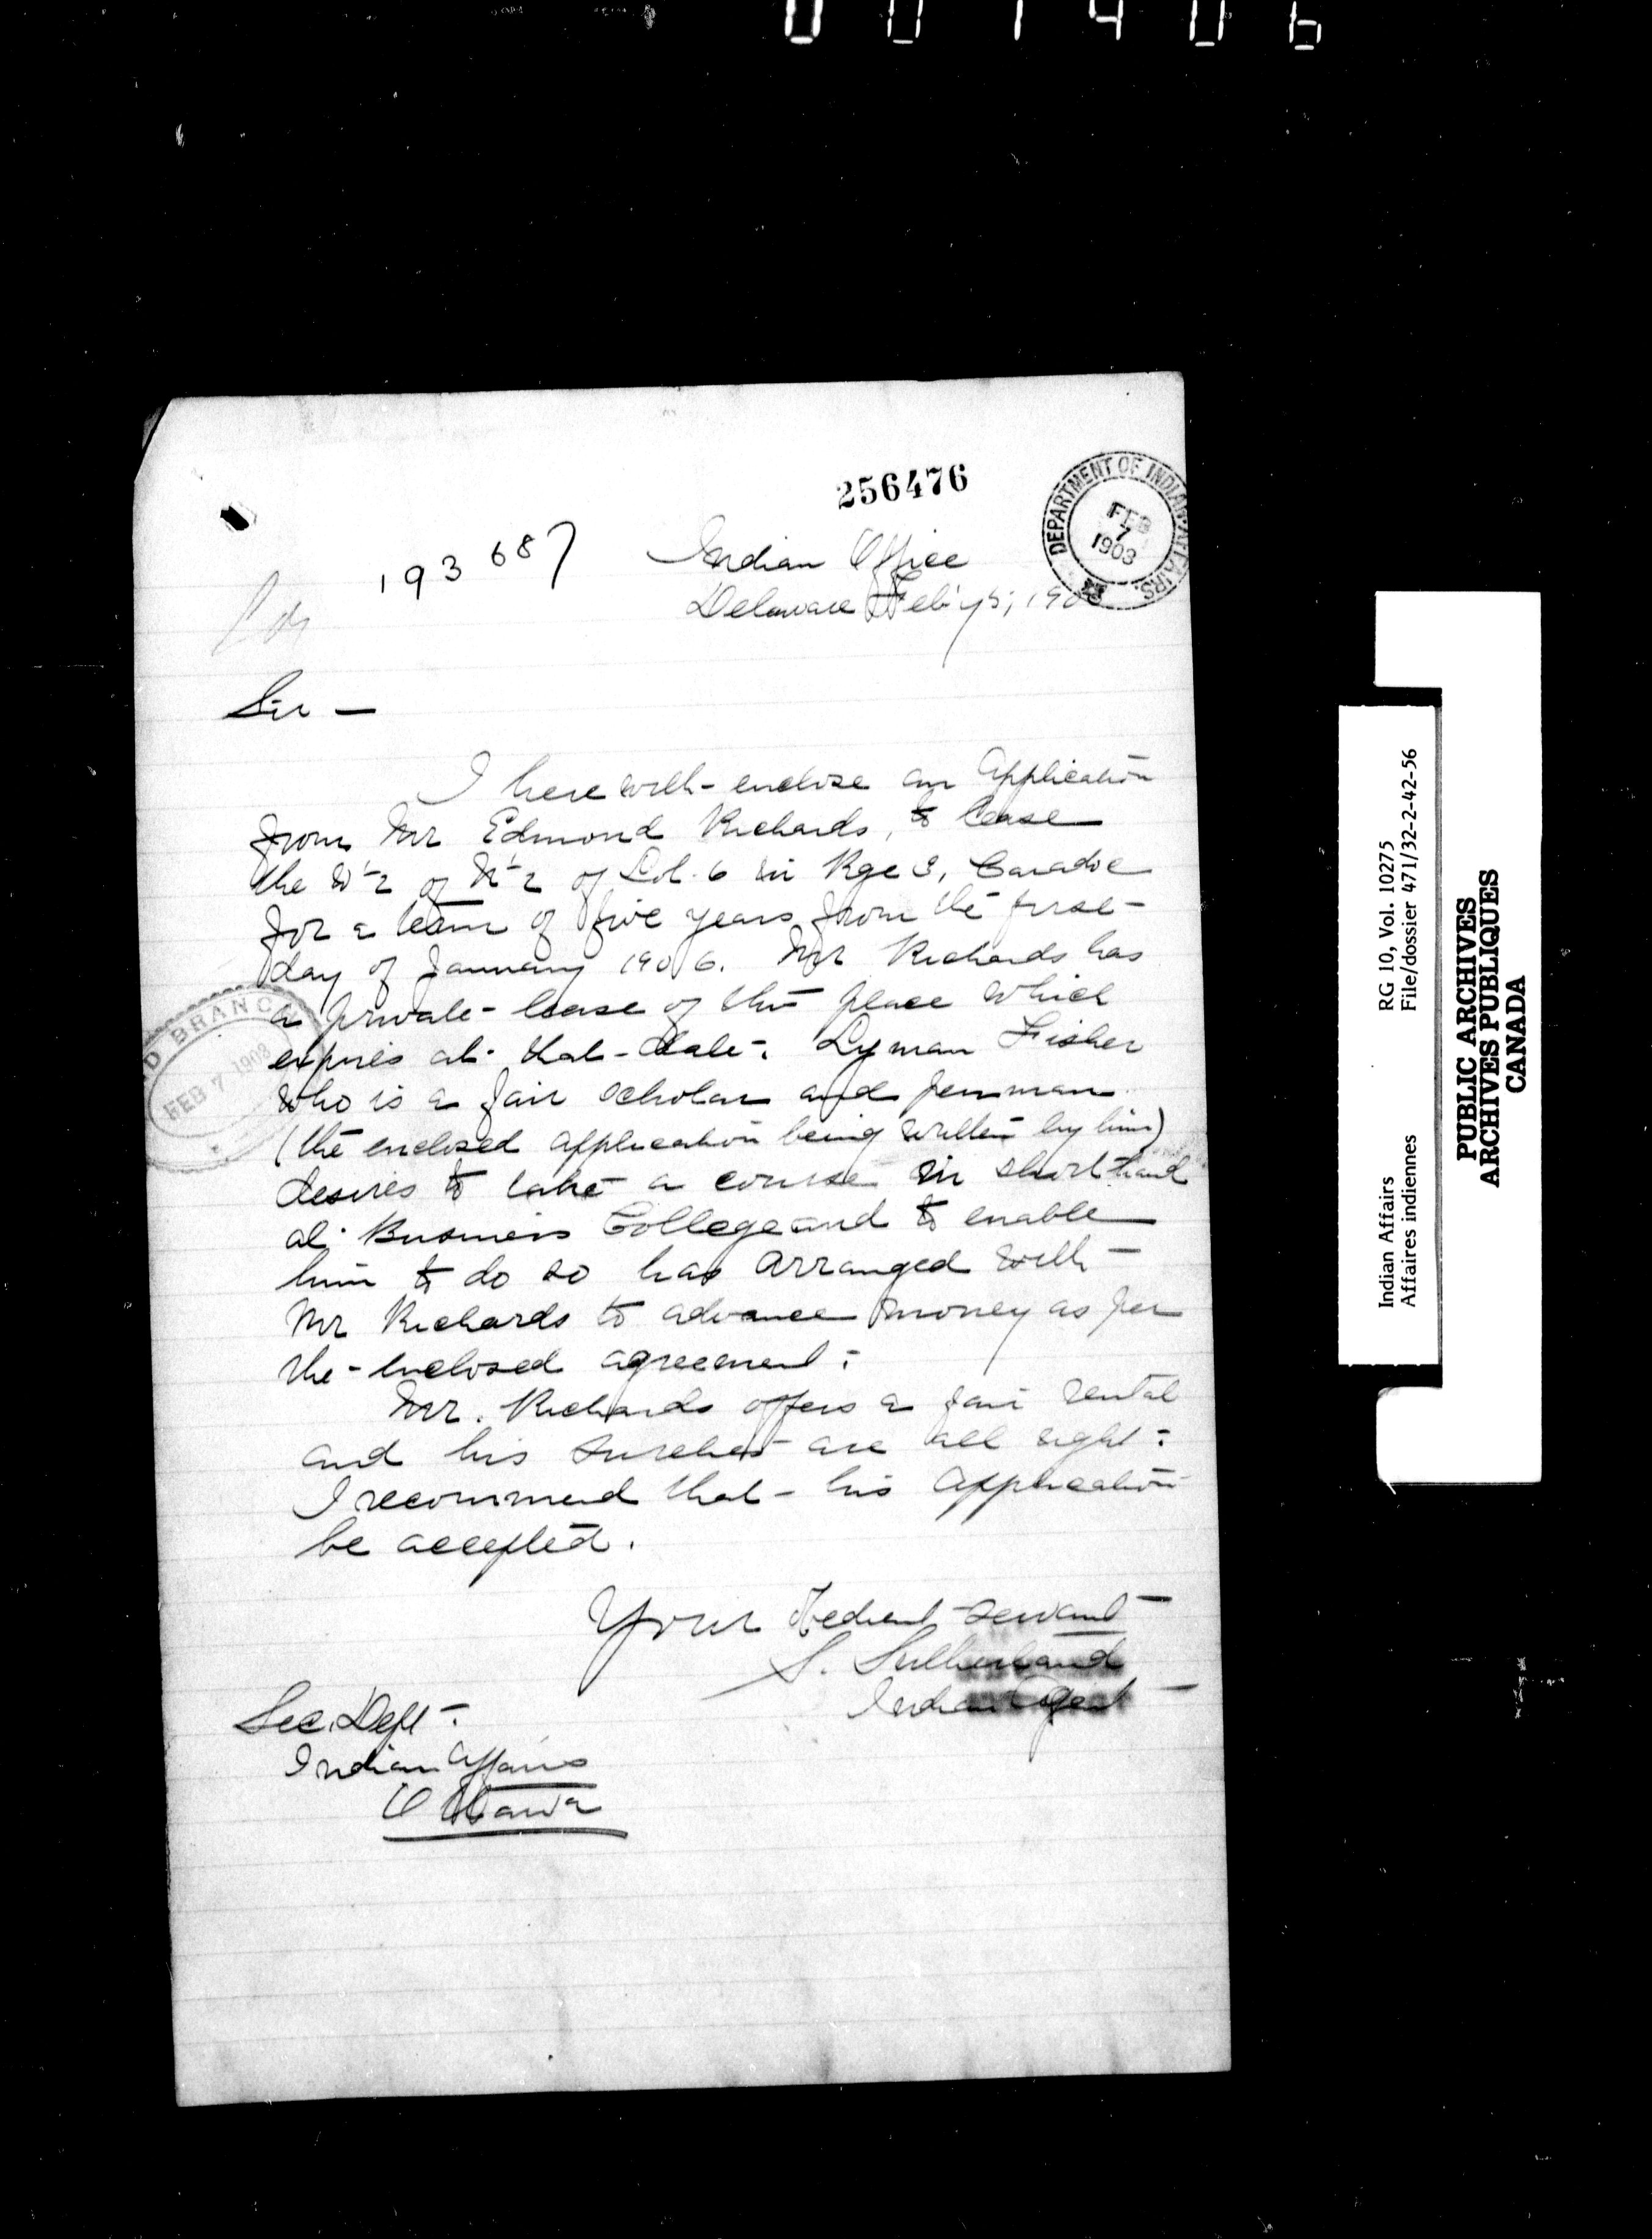 001406
256476
DEPARTMENT OF INDIAN AFFAIRS.
FEB
7
1903
193687
Indian Office
Delaware Feby 5, 1903
Sir —
I herewith enclose an application
from Mr Edmond Richards, to lease
the W ½ of N ½ of Lot 6 in Rge 3, Caradoc
for a term of five years from the first
day of January 1906. Mr Richards has
a private lease of this place which
expires at that date. Lyman Fisher
who is a fair scholar and penman
(the enclosed application being written by him)
desires to take a course in shorthand
at Business College and to enable
him to do so has arranged with
Mr Richards to advance money as per
the enclosed agreement.
Mr. Richards offers a fair rental
and his sureties are all right.
I recommend that his application
be accepted.
Your Obedient servant
S. Sutherland
Indian Agent
Sec. Dept.
Indian Affairs
Ottawa
BRANCH
FEB 7 1903
Indian Affairs RG 10, Vol. 10275
Affaires indiennes File/dossier 471/32-2-42-56
PUBLIC ARCHIVES
ARCHIVES PUBLIQUES
CANADA